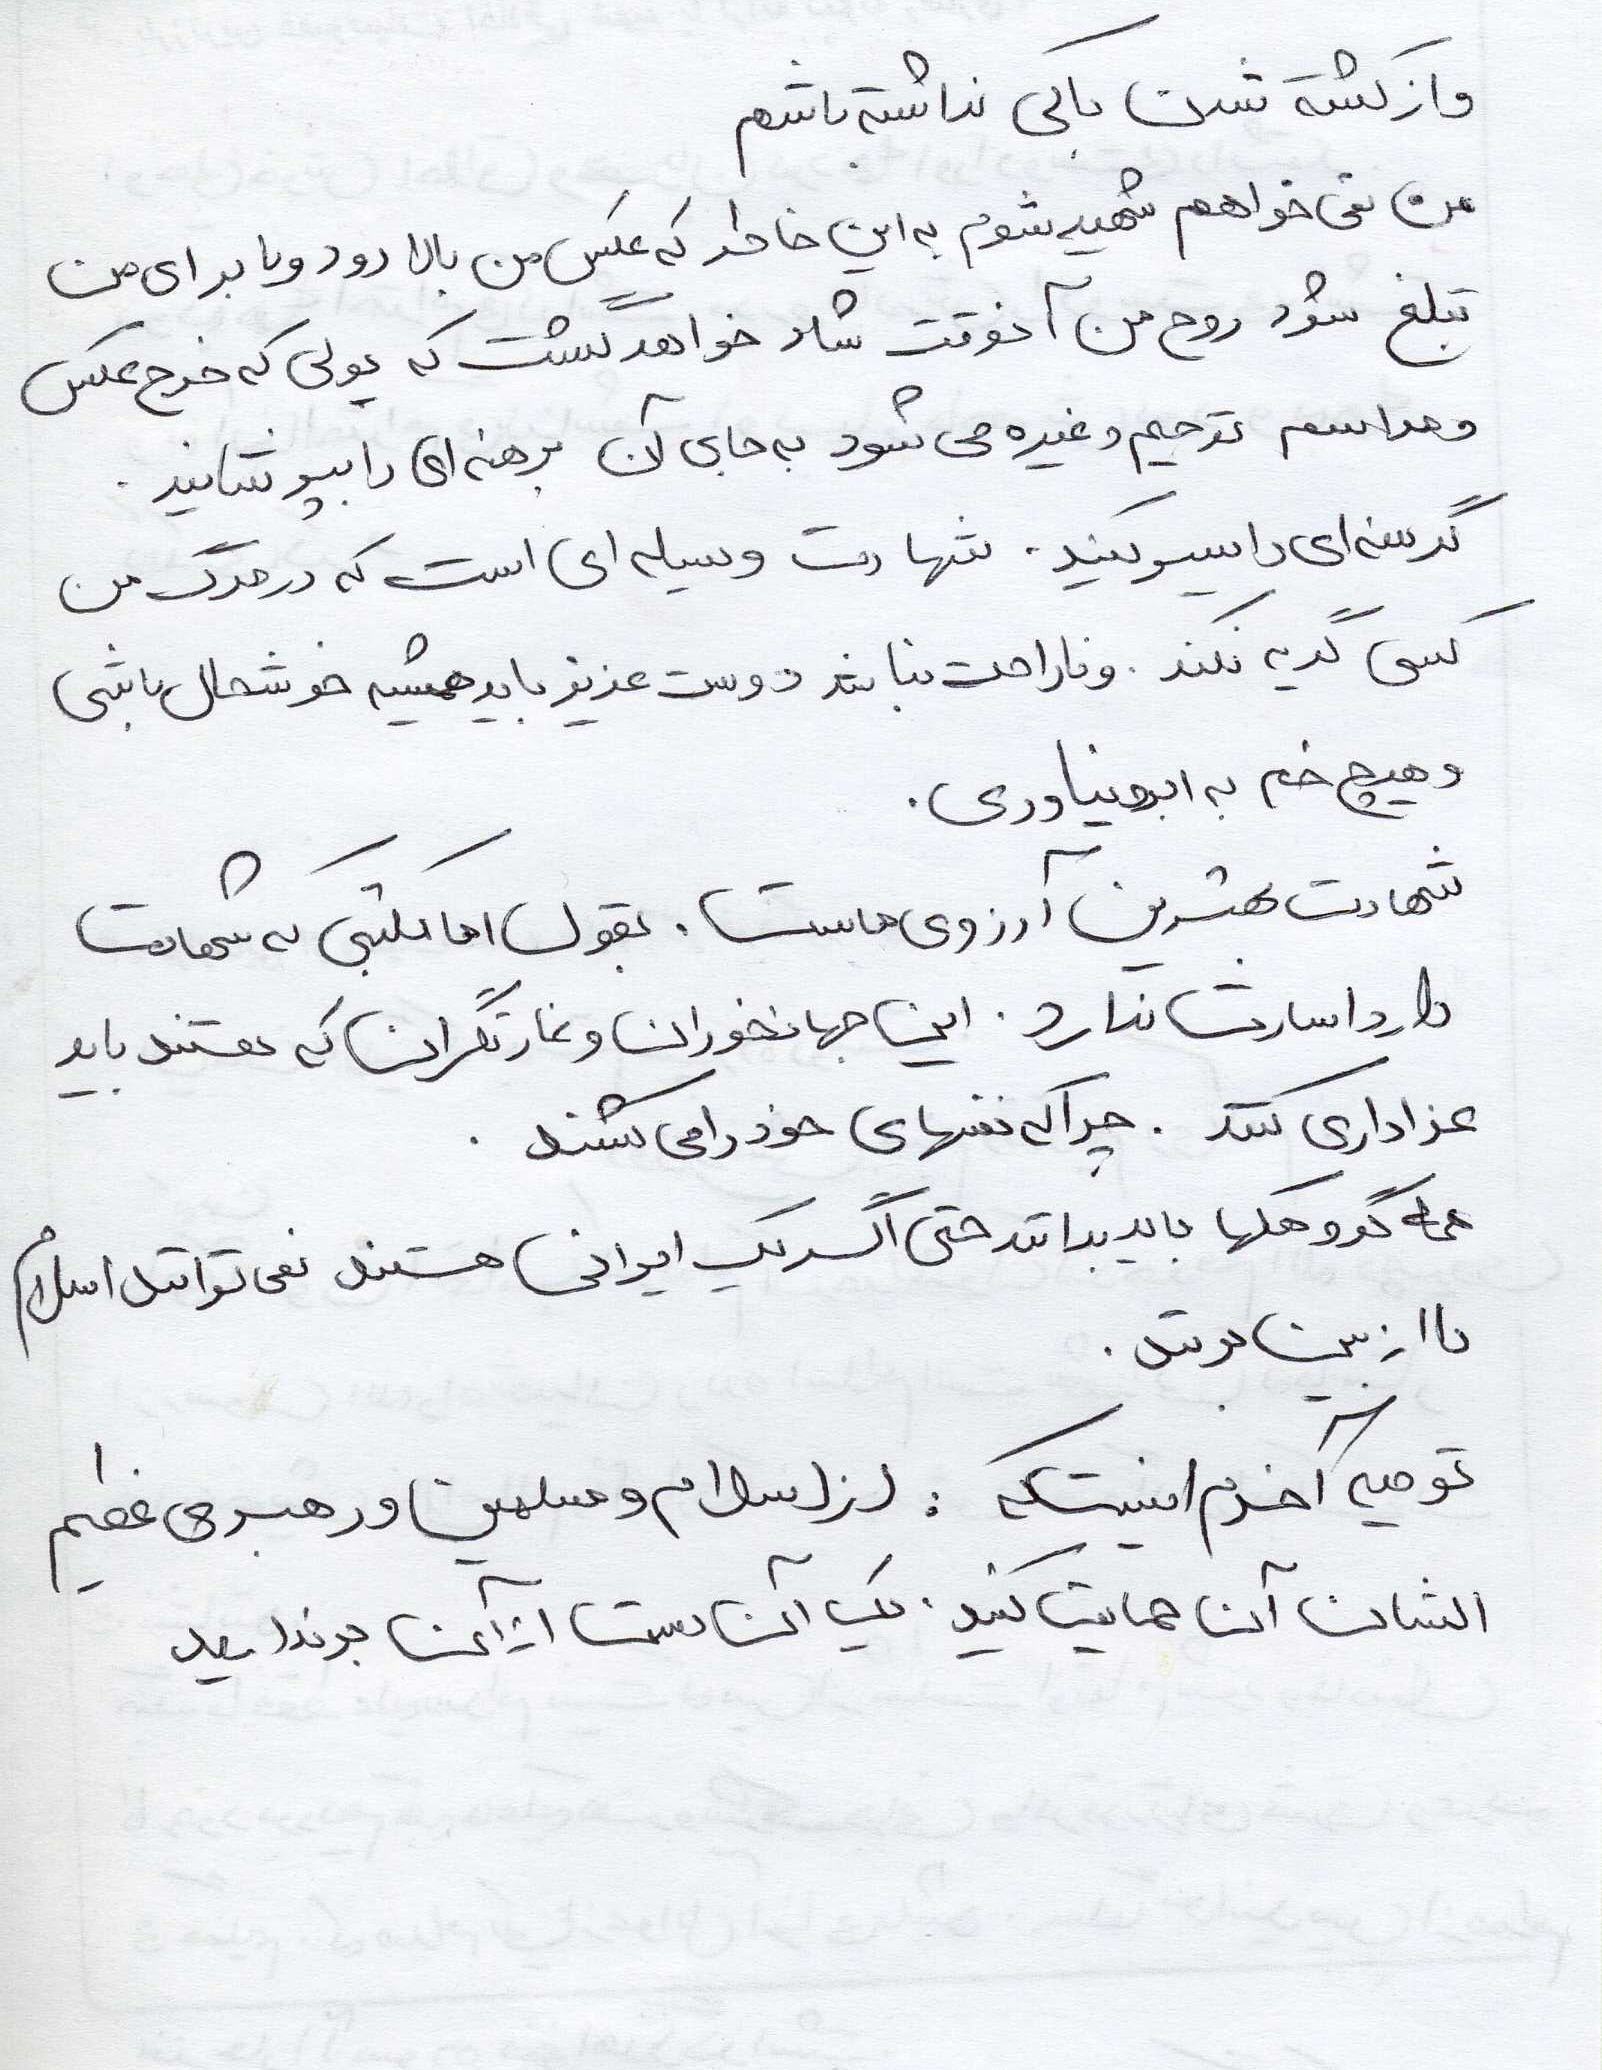 و از کشته شدن باکی نداشته باشم
من نمی خواهم شهید شوم به این خاطر که عکس من بالا رود و یا برای من
تبلغ شود روح من آنوقت شاد خواهد گشت که پولی که خرج عکس
و مراسم ترحیم و غیره می شود به جای آن برهنه ای را بپوشانید .
گرسنه ای را سیر کنید . شهادت وسیله ای است که در مرگ من
کسی گریه نکند . و ناراحت نباشد دوست عزیز باید همیشه خوشحال باشی
و هیچ خم به ابرو نیاوری .
شهادت بهترین آرزوی ماست . بقول امام ملتی که شهادت
دارد اسارت ندارد . این جهانخوران و غارتگران که هستند باید
عزاداری کنند . چرا که نفتهای خود را می کشند .
همه گروهکها باید بدانند حتی اگر یک ایرانی هستند نمی توانند اسلام
ما از بین برند .
توصیه آخرم اینستکه : از اسلام و مسلمین و رهبری عظیم
الشان آن حمایت کنید . یک آن دست از آن برندارید